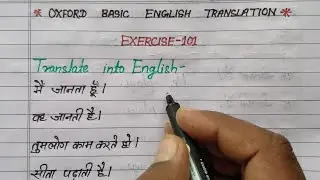 * OXFORD BASIC ENGLISH TRANSLATION *
EXERCISE-101
Translate into English-
मैं जानता हूँ।
वह जानती है।
तुमलोग काम करते हो।
सीता पढ़ाती है।